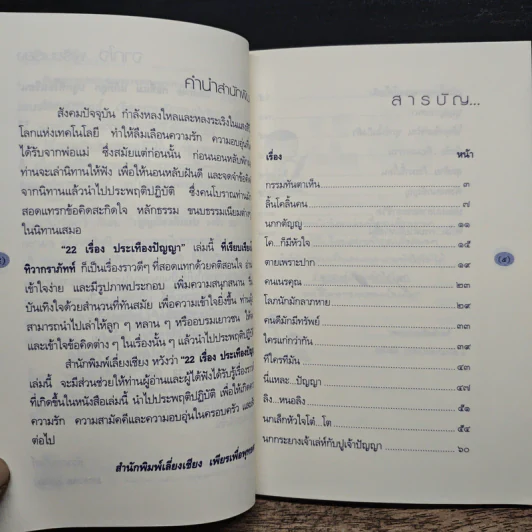 คำนำสำนักพิมพ์
สังคมปัจจุบัน กำลังหลงใหลและหลงระเริงในแสงสี
โลกแห่งเทคโนโลยี ทำให้ลืมเลือนความรัก ความอบอุ่น
ได้รับจากพ่อแม่ ซึ่งสมัยแต่ก่อนนั้น ก่อนนอนหลับ
ท่านจะเล่านิทานให้ฟัง เพื่อให้นอนหลับฝันดี และจดจำข้อคิด
จากนิทานแล้วนำไปประพฤติปฏิบัติ ซึ่งคนโบราณท่าน
สอดแทรกข้อคิดสะกิดใจ หลักธรรม ขนบธรรมเนียมต่างๆ
ในนิทานเสมอ
"22 เรื่อง ประเทืองปัญญา" เล่มนี้ ที่เรียบเรียง
ทิวากราภัทท์ ก็เป็นเรื่องราวดีๆ ที่สอดแทรกด้วยคติสอนใจ
เข้าใจง่าย และมีรูปภาพประกอบ เพิ่มความสนุกสนาน
บันเทิงใจด้วยสำนวนที่ทันสมัย เพื่อความเข้าใจยิ่งขึ้น
สามารถนำไปเล่าให้ลูก ๆ หลาน ๆ หรืออบรมเยาวชน
และเข้าใจข้อคิดต่าง ๆ ในเรื่องนั้น ๆ แล้วนำไปประพฤติปฏิบัติ
สำนักพิมพ์เลี่ยงเชียง หวังว่า "22 เรื่อง ประเทือง
เล่มนี้ จะมีส่วนช่วยให้ท่านผู้อ่านและผู้ได้ฟังได้รับรู้เรื่องราว
ที่เกิดขึ้นในหนังสือเล่มนี้ นำไปประพฤติปฏิบัติ เพื่อให้เกิด
ความรัก ความสามัคคีและความอบอุ่นในครอบครัว และ
ต่อไป
สำนักพิมพ์เลี่ยงเชียง เพียรเพื่อพุทธ
สารบัญ...
เรื่อง หน้า
กรรมทันตาเห็น ๓
ลิ้นโคลิ้นคน ๗
นกกตัญญู ๑๑
โค...ก็มีหัวใจ ๑๕
ตายเพราะปาก ๑๙
คนเนรคุณ ๒๓
โลภนักมักลาภหาย ๒๙
คนดีมักมีทรัพย์ ๓๓
ใครแก่กว่ากัน ๓๙
ทีใครทีมัน ๔๓
นี่แหละ...ปัญญา ๔๗
ลิง...หนอลิง ๕๑
นกเล็กหัวใจโต๋...โต ๕๔
นกกระยางเจ้าเล่ห์กับปูเจ้าปัญญา ๖๐